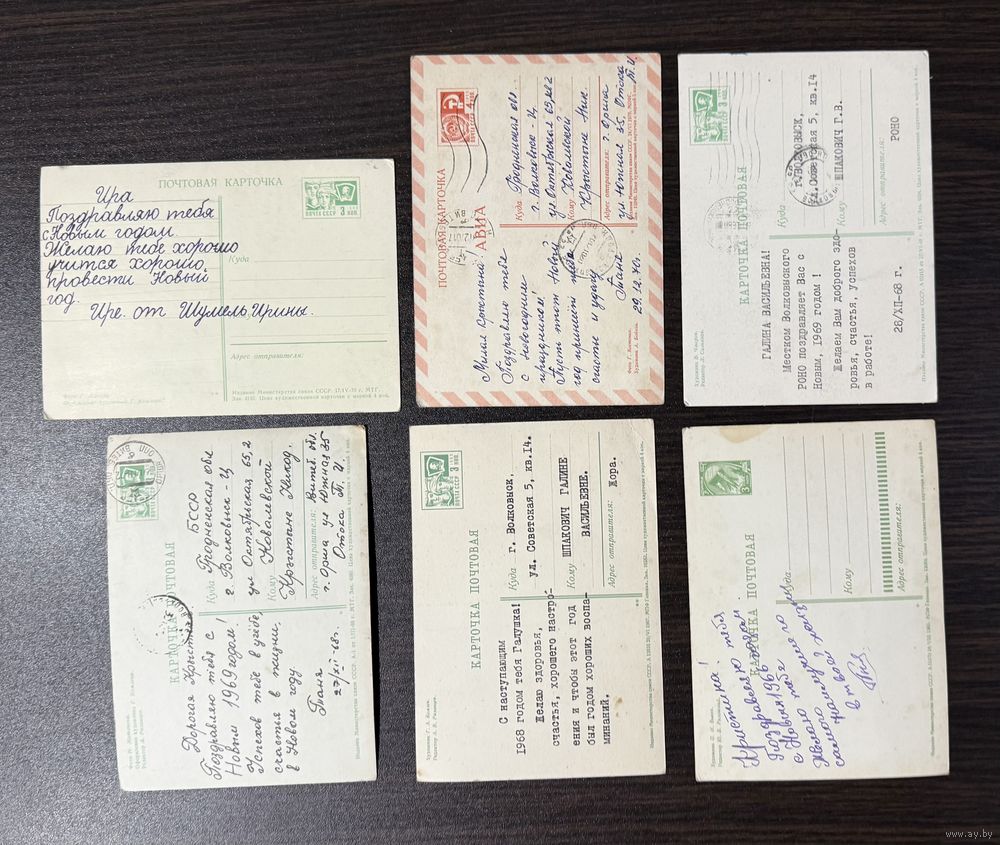 ПОЧТОВАЯ КАРТОЧКА
ПОЧТА СССР 3 коп.
Ира
Поздравляю тебя
с Новым годом
Желаю тебе хорошо
учится хорошо,
провести Новый
год.
Ире. от Шумель Ирины.
Куда
Адрес отправителя:
Издание Министерства связи СССР.
ПОЧТОВАЯ КАРТОЧКА
АВИА
Куда Гродненская обл.
г. Волковыск-14
ул Октябрьская 65 кв 2
Кому Ковалевской
Крыстыне Ник.
Адрес отправителя: г. Орша
ул. Южная 35, Отока
Т. И.
Милая Крыстын!
Поздравляю тебя
с Новогодним
праздником!
Пусть этот Новый
год принесёт тебе
счастье и удачу
Таня
29.12.70г.
КАРТОЧКА ПОЧТОВАЯ
3 коп.
Куда г. Волковыск,
ул. Советская 5, кв.14
Кому ШПАКОВИЧ Г.В.
Адрес отправителя:
РОНО
ГАЛИНА ВАСИЛЬЕВНА!
Местком Волковыского
РОНО поздравляет Вас с
Новым, 1969 годом !
Желаем Вам доброго здо-
ровья, счастья, успехов
в работе!
28/XII-68 г.
КАРТОЧКА ПОЧТОВАЯ
БССР
Куда Гродненская обл
г. Волковыск-14
ул Октябрьская 65,2
Кому Ковалевской
Крыстыне Никод.
Адрес отправителя: Витеб. обл.
г. Орша ул Южная 35
Отока Т. И.
Дорогая Крыстын
Поздравляю тебя с
Новым 1969 годом!
Успехов тебе в учебе,
счастья в жизни
в Новом году
Таня
27/XII-68г.
КАРТОЧКА ПОЧТОВАЯ
ПОЧТА СССР 3 коп.
Куда г. Волковыск,
ул. Советская 5, кв.14.
Кому ШПАКОВИЧ ГАЛИНЕ
ВАСИЛЬЕВНЕ.
Адрес отправителя:
Жора.
С наступающим
1968 годом тебя Галушка!
Желаю здоровья,
счастья, хорошего настро-
ения и чтобы этот год
был годом хороших воспо-
минаний.
КАРТОЧКА ПОЧТОВАЯ
3
Куда
Кому
Адрес отправителя:
Кристина!
Поздравляю тебя
с Новым 1968 годом
Желаю тебе
самого
в твоей
www.ay.by